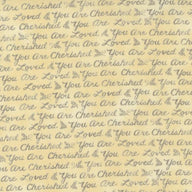 You Are Cherished
You Are Loved & You Are Cherished
Are Cherished & You Are Loved
You Are Loved & You Are Cherished
You Are Cherished & You Are Loved
Are Loved & You Are Cherished
You Are Cherished & You Are Loved
Are Loved & You Are Cherished & You
Are Cherished & You Are Loved
Loved & You Are Cherished & You Are
Cherished & You Are Loved & You Are
Loved & You Are Cherished & You Are
Cherished & You Are Loved & You Are